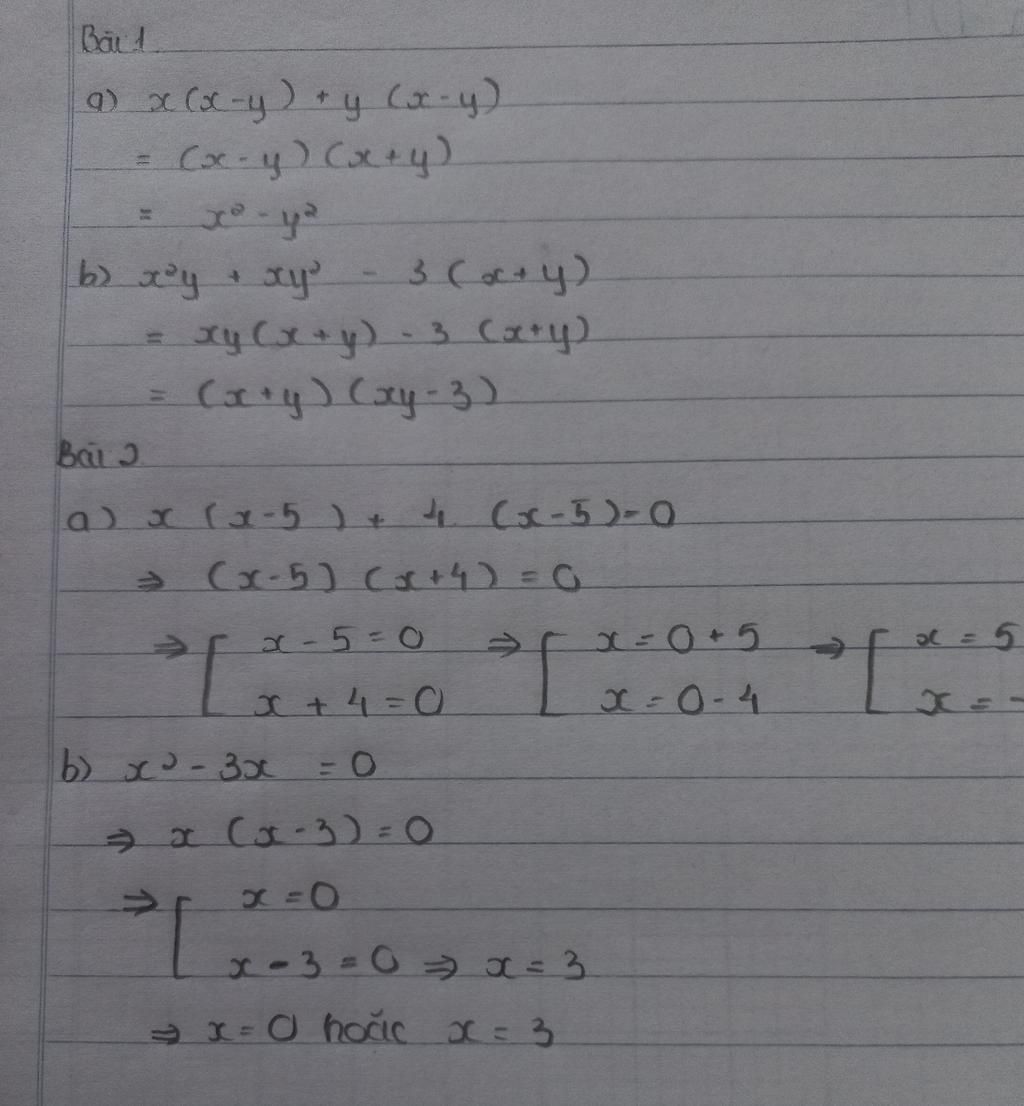 Bài 1
a) x(x-y) + y (x-y)
= (x-y)(x+y)
= x² - y²
b) x²y + xy² - 3(x+y)
= xy(x+y) - 3 (x+y)
= (x+y)(xy-3)
Bài 2
a) x(x-5) + 4 (x-5)=0
⇒ (x-5) (x+4) = 0
⇒ [ x - 5 = 0 ⇒ [ x = 0 + 5 ⇒ [ x = 5
x + 4 = 0 x = 0 - 4 x = -
b) x² - 3x = 0
⇒ x (x-3) = 0
⇒ [ x = 0
x - 3 = 0 ⇒ x = 3
⇒ x = 0 hoặc x = 3